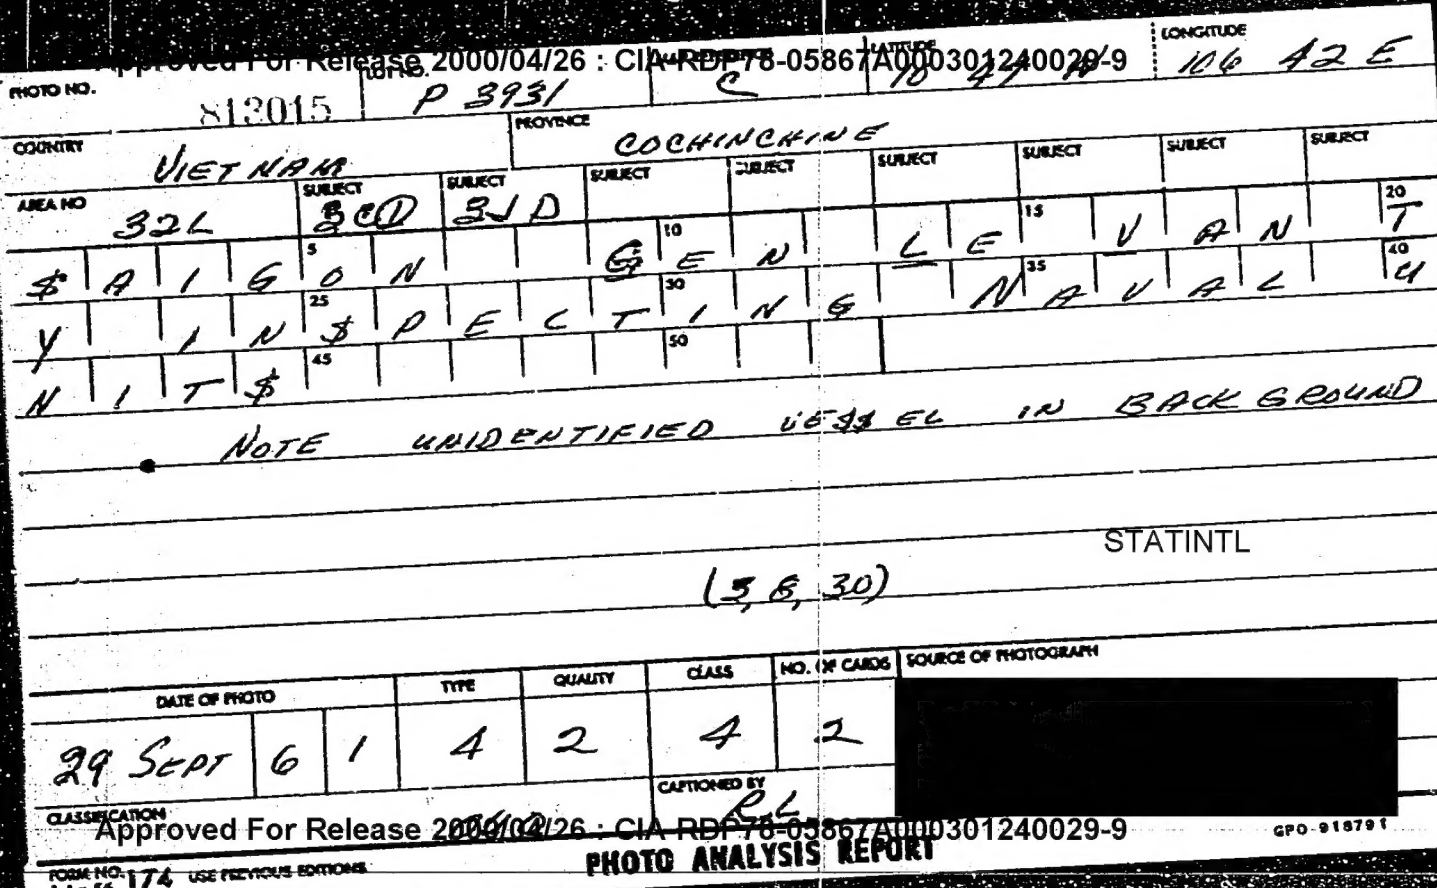 Approved For Release 2000/04/26 : CIA-RDP78-05867A000301240029-9
PHOTO NO. 813015 PLOT NO. P 3931 C LATITUDE 10 47 N LONGITUDE 106 42 E
COUNTRY VIET NAM PROVINCE COCHINCHINE
AREA NO 32L SUBJECT SUBJECT 3JD SUBJECT SUBJECT SUBJECT SUBJECT SUBJECT SUBJECT
$AIGON GEN LE VAN T
5 10 15 20
Y IN$PECTING NAVAL U
25 30 35 40
NIT$
45 50
NOTE UNIDENTIFIED VE$$EL IN BACKGROUND
STATINTL
(5, 8, 30)
DATE OF PHOTO TYPE QUALITY CLASS NO. OF CARDS SOURCE OF PHOTOGRAPH
29 SEPT 6 1 4 2 4 2
CLASSIFICATION CAPTIONED BY R.L
Approved For Release 2000/04/26 : CIA-RDP78-05867A000301240029-9
GPO 918791
FORM NO. 174 USE PREVIOUS EDITIONS PHOTO ANALYSIS REPORT